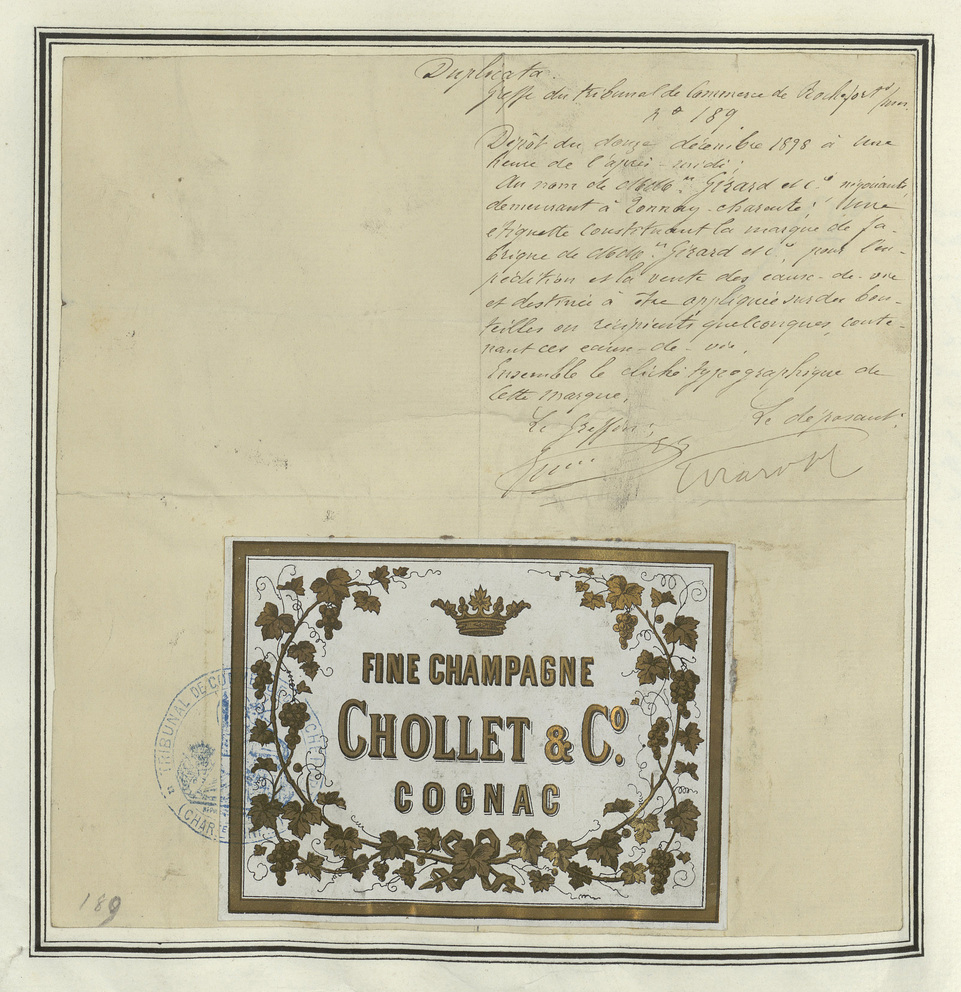 Duplicata.
Greffe du tribunal de Commerce de Rochefort s/mer.
nº 189
Dépôt du douze décembre 1898 à une
heure de l'après-midi:
Au nom de MM.rs Gérard et C.ie négociants
demeurant à Tonnay-charente; Une
etiquette constituant la marque de fa-
brique de MM.rs Gérard et C.ie, pour l'ex-
pédition et la vente des eaux-de-vie
et destinée à être appliquée sur des bou-
teilles ou récipients quelconques, conte-
nant ces eaux-de-vie.
Ensemble le cliché typographique de
cette marque.
Le Greffier, Le déposant:
FINE CHAMPAGNE
CHOLLET & Cº.
COGNAC
TRIBUNAL DE CO
(CHAR.
189